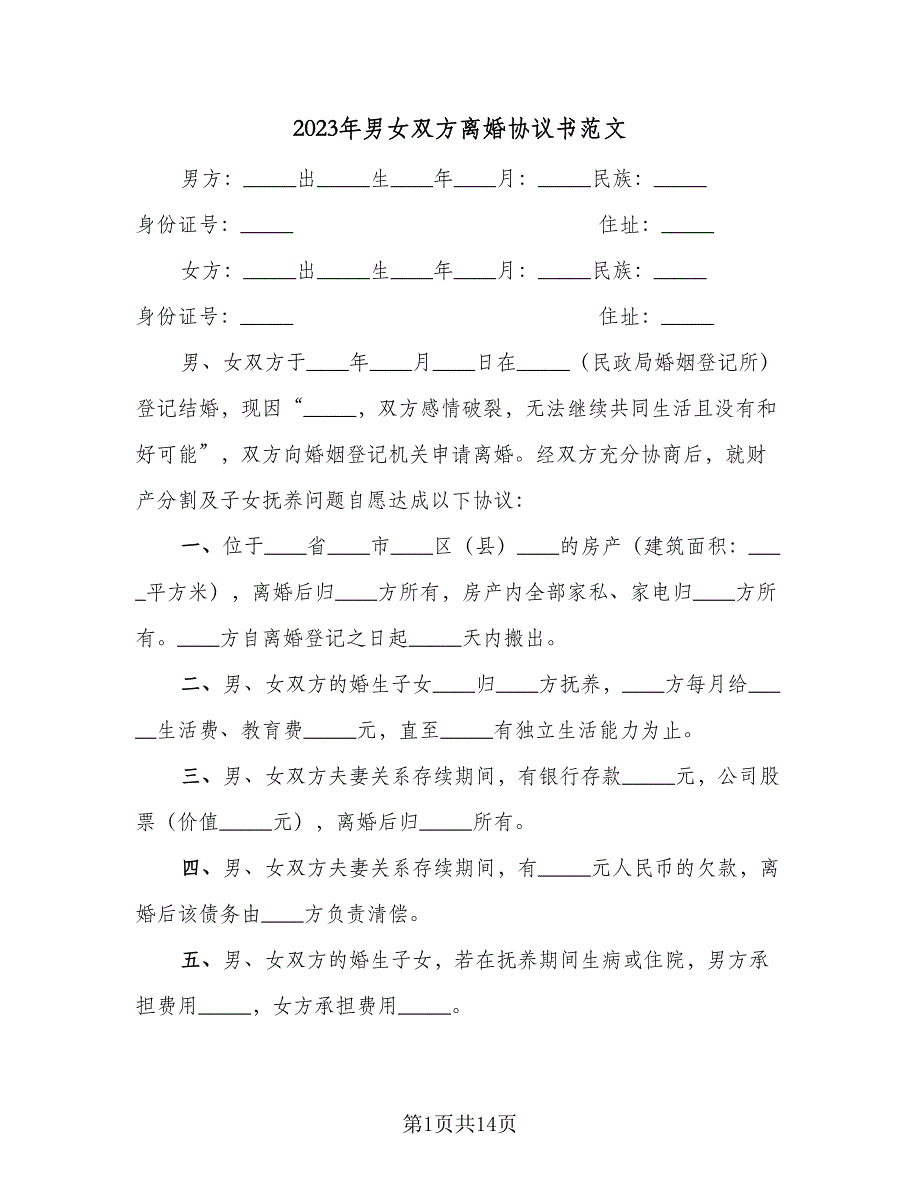 2023年男女双方离婚协议书范文
男方：_____出_____生____年____月：_____民族：_____
身份证号：_____ 住址：_____
女方：_____出_____生____年____月：_____民族：_____
身份证号：_____ 住址：_____
男、女双方于____年____月____日在_____（民政局婚姻登记所）
登记结婚，现因“_____，双方感情破裂，无法继续共同生活且没有和
好可能”，双方向婚姻登记机关申请离婚。经双方充分协商后，就财
产分割及子女抚养问题自愿达成以下协议：
一、位于____省____市____区（县）____的房产（建筑面积：___
_平方米），离婚后归____方所有，房产内全部家私、家电归____方所
有。____方自离婚登记之日起_____天内搬出。
二、男、女双方的婚生子女____归____方抚养，____方每月给___
__生活费、教育费_____元，直至_____有独立生活能力为止。
三、男、女双方夫妻关系存续期间，有银行存款_____元，公司股
票（价值_____元），离婚后归_____所有。
四、男、女双方夫妻关系存续期间，有_____元人民币的欠款，离
婚后该债务由____方负责清偿。
五、男、女双方的婚生子女，若在抚养期间生病或住院，男方承
担费用_____，女方承担费用_____。
第1页共14页